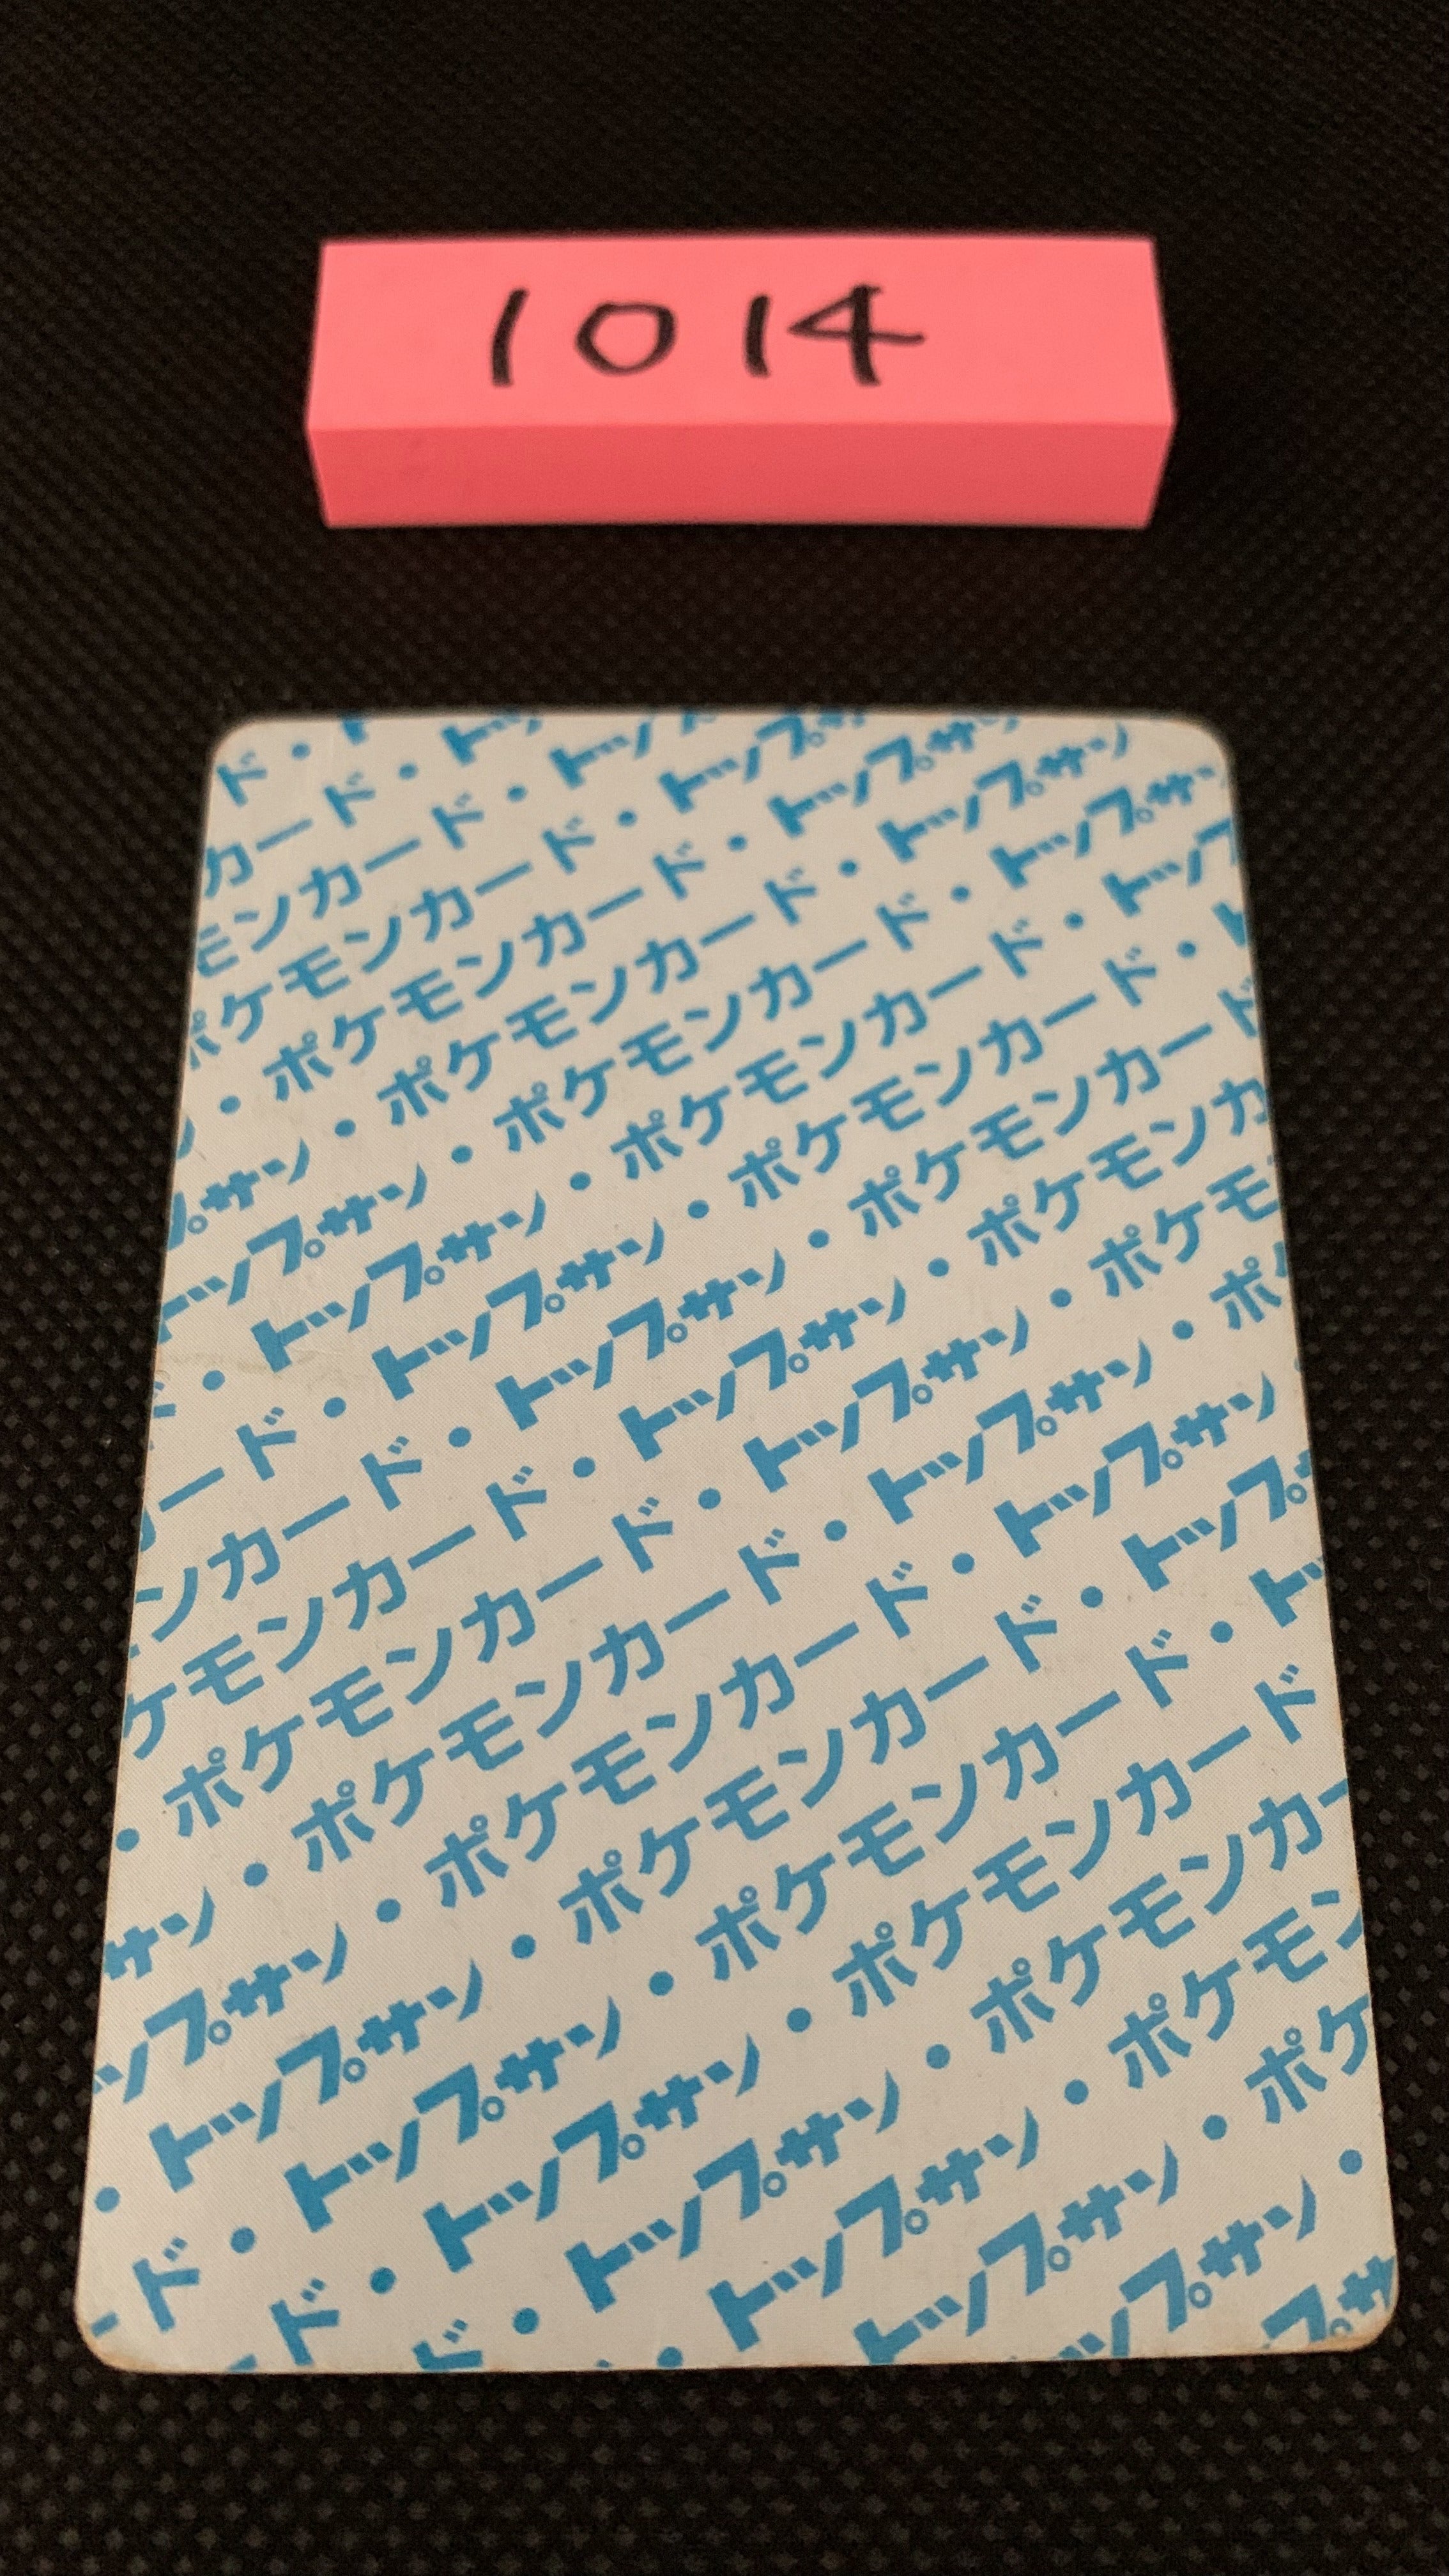 1014
ド・ト
カード・トッ
モンカード・トッ
ポケモンカード・トップサ
・ポケモンカード・トップサン
プサン・ポケモンカード・トップサン
トップサン・ポケモンカード・トップサン
・トップサン・ポケモンカード・トップ
ード・トップサン・ポケモンカード・ト
ンカード・トップサン・ポケモンカード
ケモンカード・トップサン・ポケモンカ
・ポケモンカード・トップサン・ポケモ
サン・ポケモンカード・トップサン・ポ
ップサン・ポケモンカード・トップサン
・トップサン・ポケモンカード・トップ
ド・トップサン・ポケモンカード・トッ
ド・トップサン・ポケモンカード
ド・トップサン・ポケモンカー
・トップサン・ポケモン
トップサン・ポケ
ップサン・
プサ